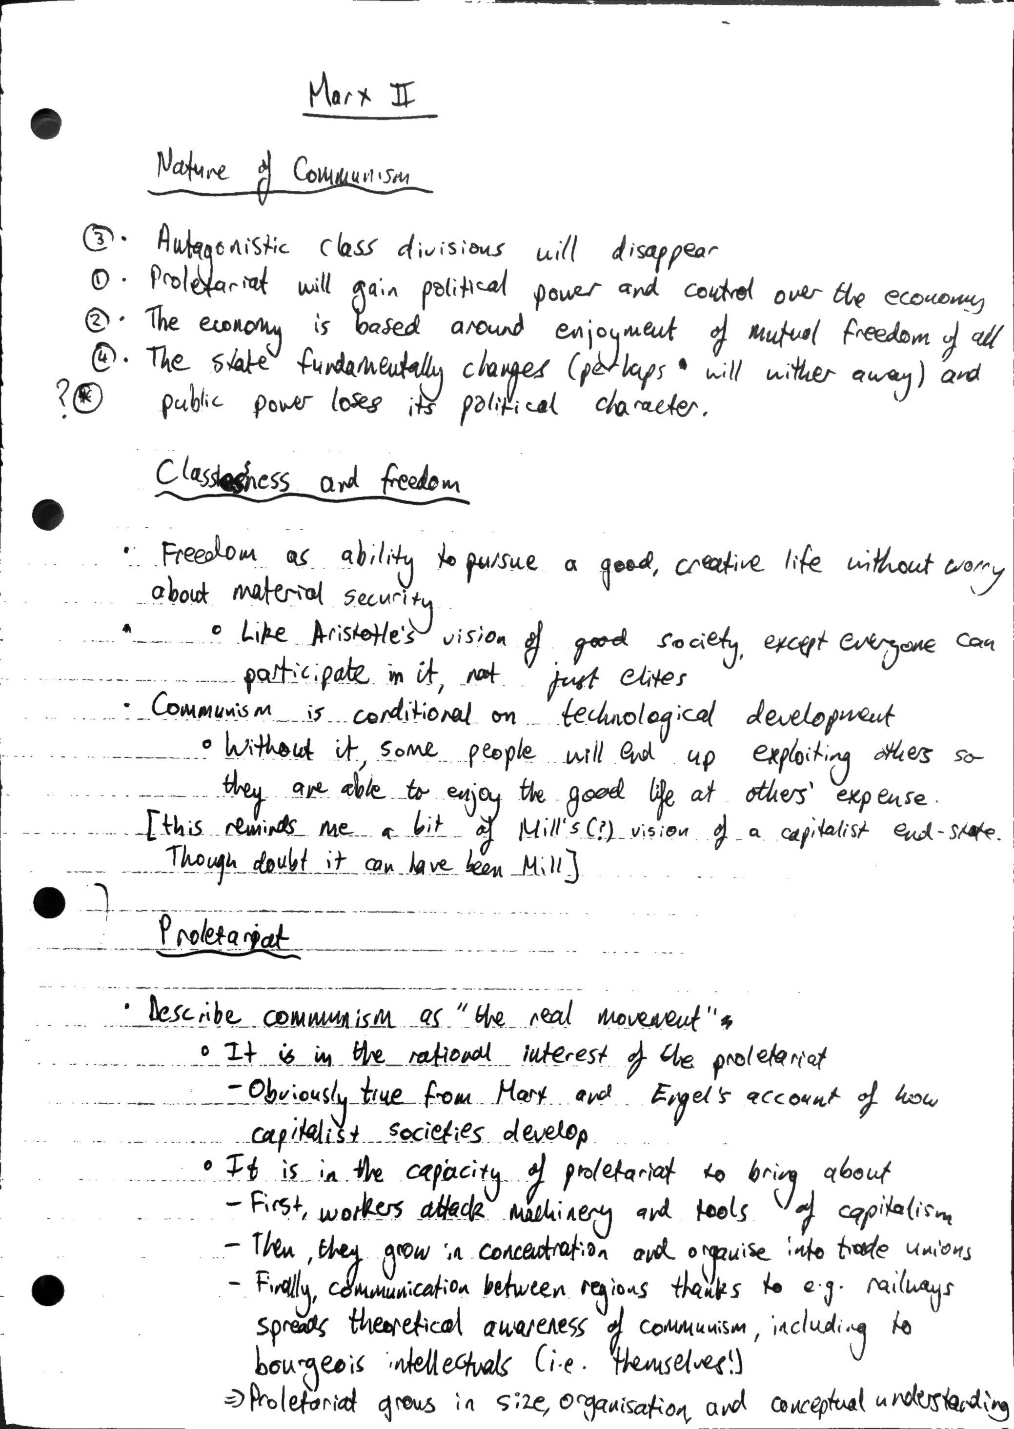 Marx II
Nature of Communism
③ · Antagonistic class divisions will disappear
① · Proletariat will gain political power and control over the economy
② · The economy is based around enjoyment of mutual freedom of all
④ · The state fundamentally changes (perhaps will wither away) and
? * public power loses its political character.
Classlessness and freedom
· Freedom as ability to pursue a good, creative life without worry
about material security
◦ Like Aristotle's vision of good society, except everyone can
participate in it, not just elites
· Communism is conditional on technological development
◦ Without it, some people will end up exploiting others so
they are able to enjoy the good life at others' expense.
[this reminds me a bit of Mill's(?) vision of a capitalist end-state.
Though doubt it can have been Mill]
Proletariat
· Describe communism as "the real movement"
◦ It is in the rational interest of the proletariat
- Obviously true from Marx and Engel's account of how
capitalist societies develop
◦ It is in the capacity of proletariat to bring about
- First, workers attack machinery and tools of capitalism
- Then, they grow in concentration and organise into trade unions
- Finally, communication between regions thanks to e.g. railways
spreads theoretical awareness of communism, including to
bourgeois intellectuals (i.e. themselves!)
⇒ Proletariat grows in size, organisation and conceptual understanding